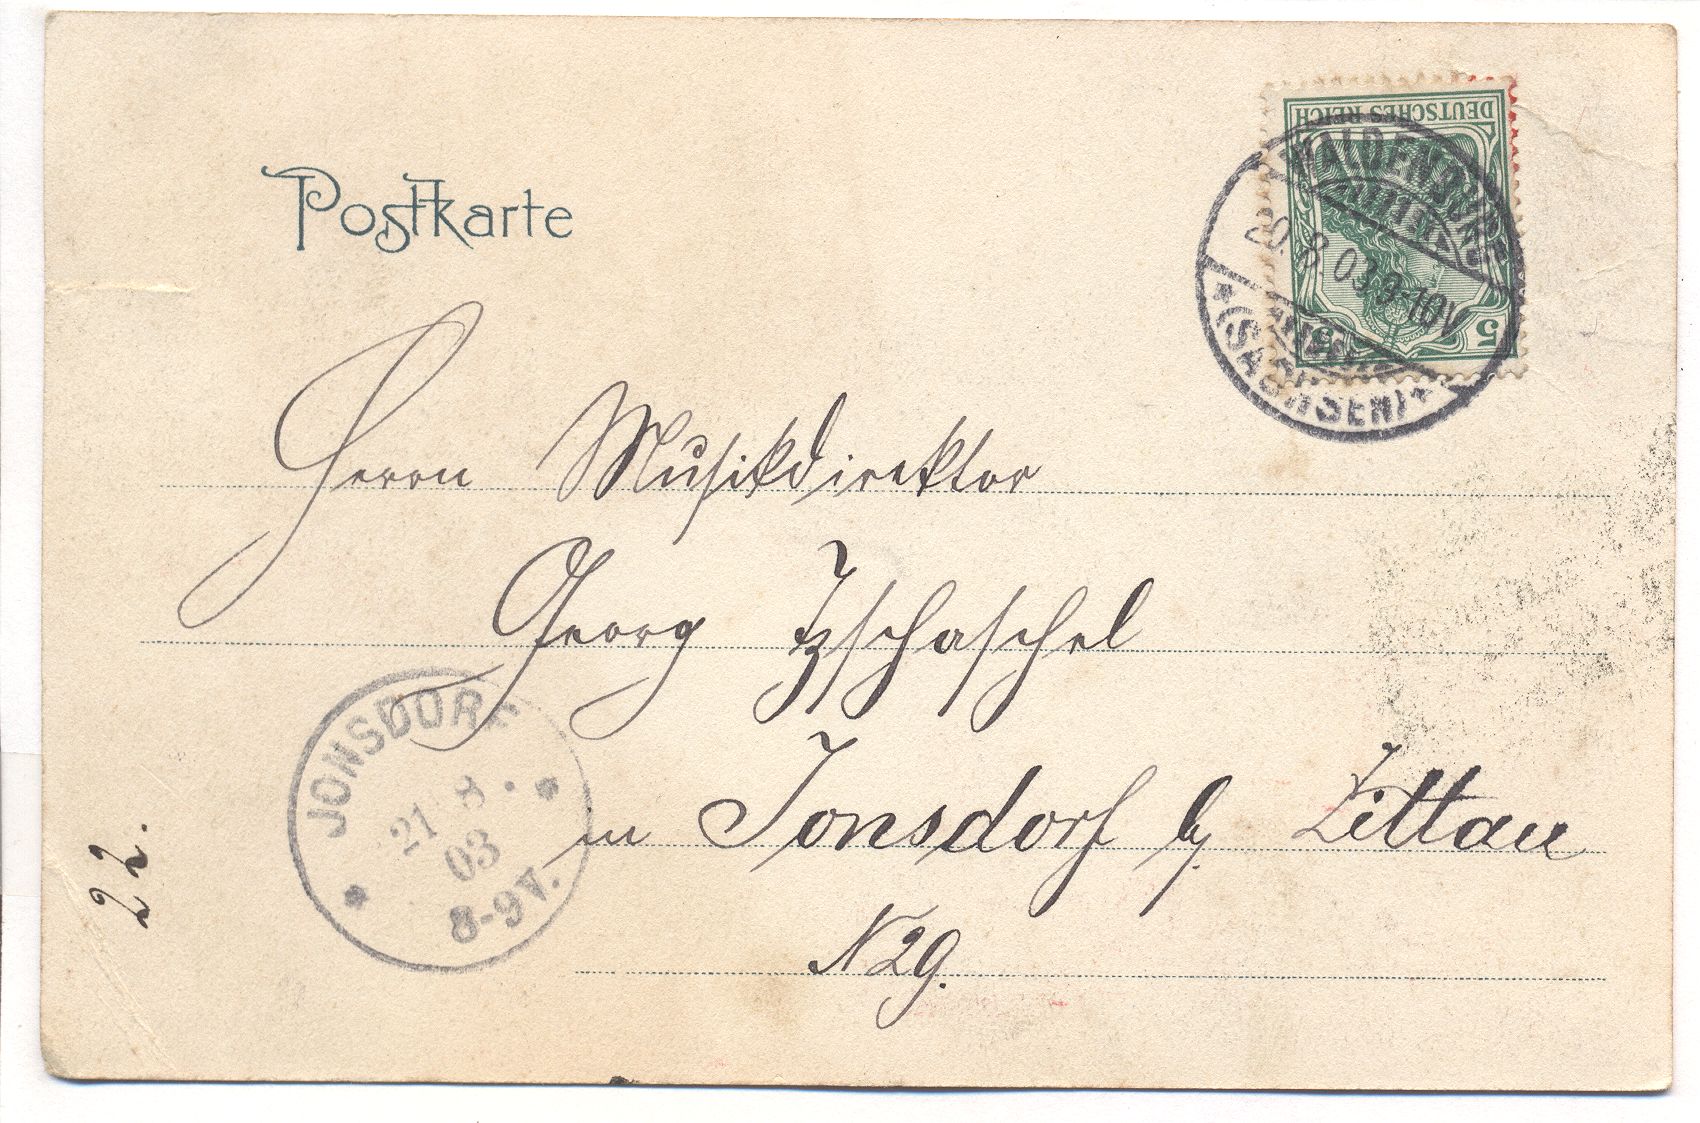 Postkarte
DEUTSCHES REICH
5 5
WALDENBURG
20.8 03.9-10V
*(SACHSEN)*
Herrn Musikdirektor
Georg Zschaschel
in Jonsdorf b/ Zittau
N 29.
JONSDORF
21 8.
03
8-9V.
22.